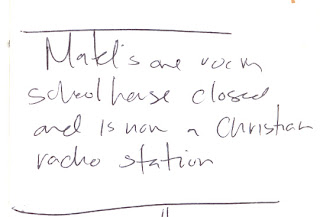 Matel's one room
school house closed
and is now a Christian
radio station